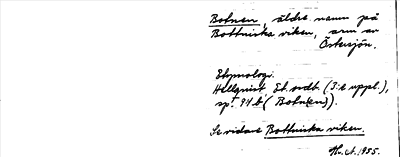 Botnen, äldre namn på
Bottniska viken, arm av
Östersjön.
Etymologi:
Hellquist, Et. ordb. (3:e uppl.),
sp. 94 b (Botn(en)).
Se vidare Bottniska viken.
1955.